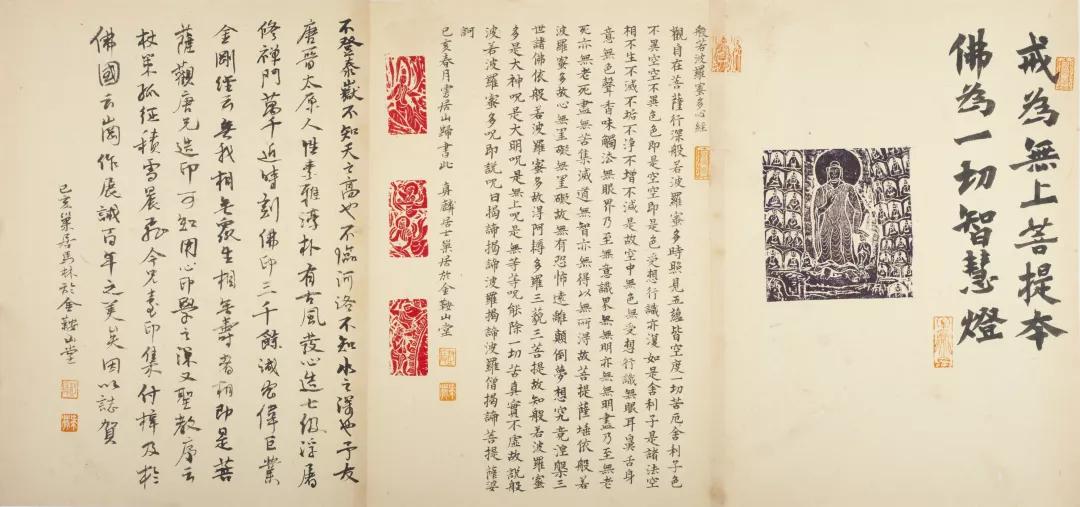 戒為無上菩提本
佛為一切智慧燈
般若波羅蜜多心經
觀自在菩薩行深般若波羅蜜多時照見五蘊皆空度一切苦厄舍利子色
不異空空不異色色即是空空即是色受想行識亦復如是舍利子是諸法空
相不生不滅不垢不淨不增不減是故空中無色無受想行識無眼耳鼻舌身
意無色聲香味觸法無眼界乃至無意識界無無明亦無無明盡乃至無老
死亦無老死盡無苦集滅道無智亦無得以無所得故菩提薩埵依般若
波羅蜜多故心無罣礙無罣礙故無有恐怖遠離顛倒夢想究竟涅槃三
世諸佛依般若波羅蜜多故得阿耨多羅三藐三菩提故知般若波羅蜜
多是大神呪是大明呪是無上呪是無等等呪能除一切苦真實不虛故説般
波若波羅蜜多呪即説呪曰揭諦揭諦波羅揭諦波羅僧揭諦菩提薩婆
訶
己亥春月雲居山歸書此 麟居士巢居於金鞍山堂
不登泰嶽不知天之高也不臨河洛不知水之深也予友
唐晉太原人性素雅淳朴有古風發心造七級浮屠
修禪門萬千近時刻佛印三千餘誠宏偉巨業
金剛經云無我相無衆生相無壽者相即是菩
薩觀唐兄造印可知用心印學之深又聖教序云
杖策孤征積雪晨飛今兄畫印集付梓及於
佛國云崗作展誠百年之美矣因以誌賀
己亥巢居馬林於金鞍山堂